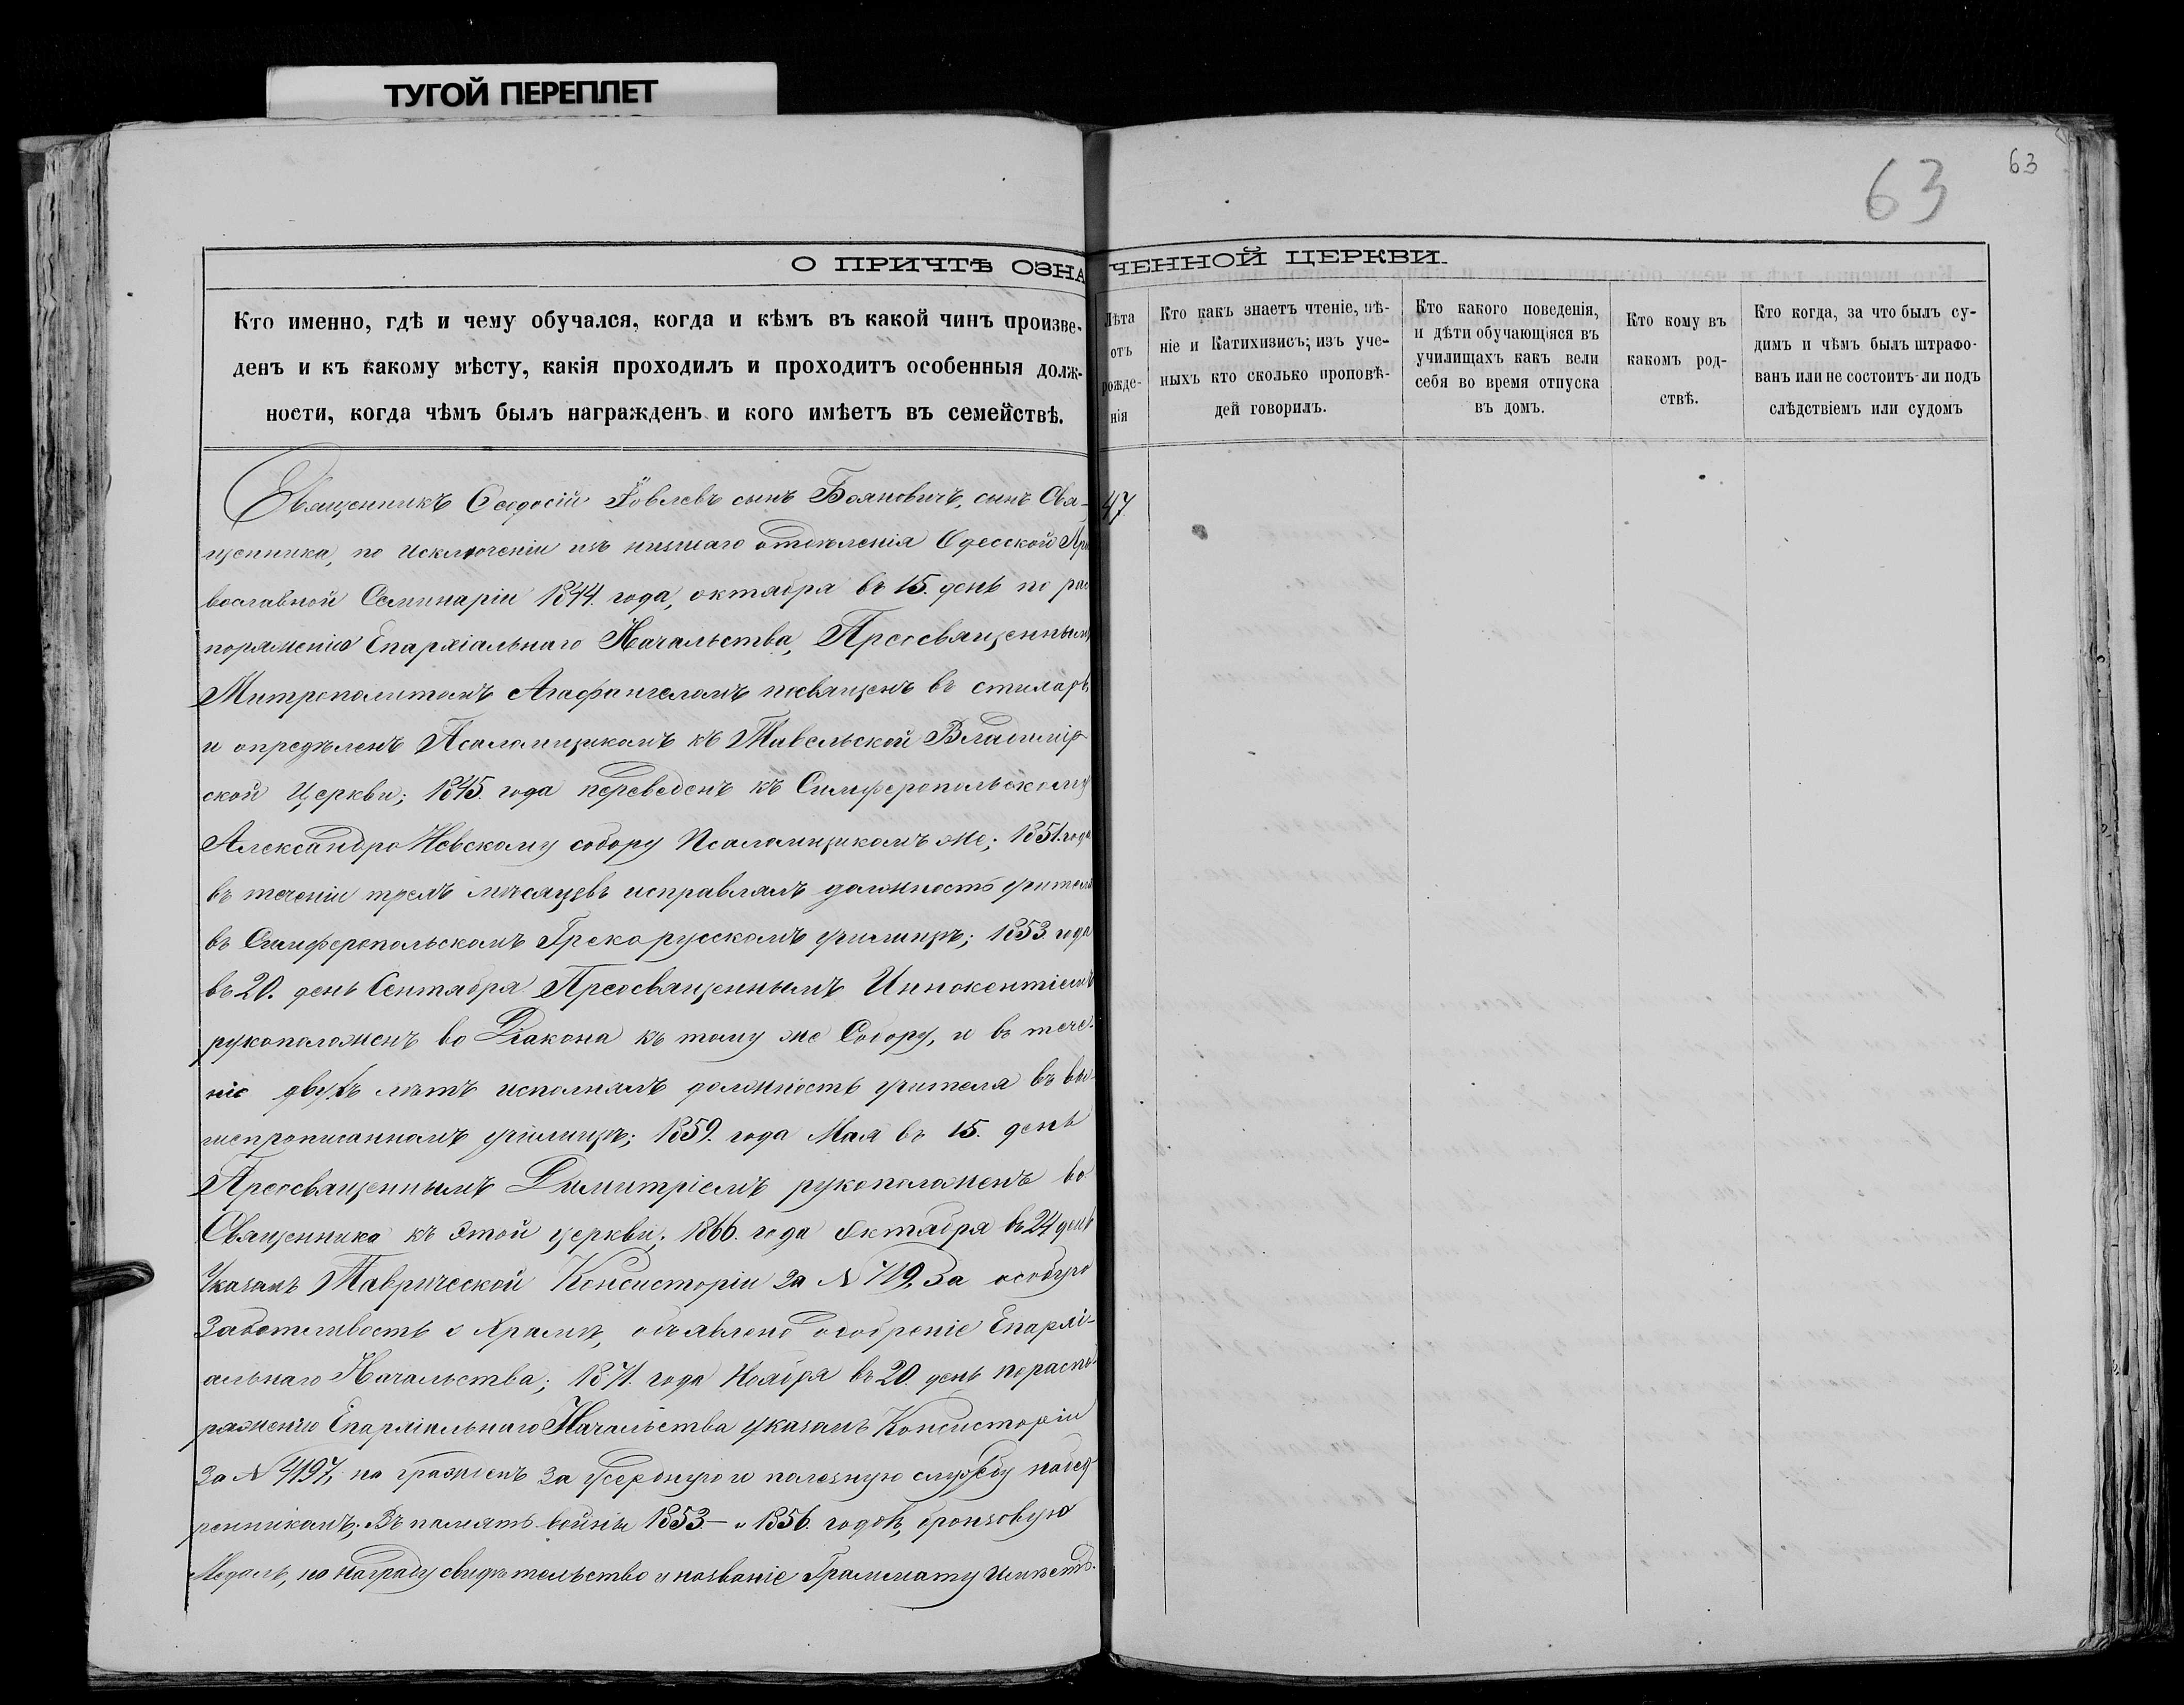 ТУГОЙ ПЕРЕПЛЕТ
63
63
О ПРИЧТѢ ОЗНАЧЕННОЙ ЦЕРКВИ.
Кто именно, гдѣ и чему обучался, когда и кѣмъ въ какой чинъ произве-
денъ и къ какому мѣсту, какія проходилъ и проходитъ особенныя долж-
ности, когда чѣмъ былъ награжденъ и кого имѣетъ въ семействѣ.
Лѣта
отъ
рожде-
нія
Кто какъ знаетъ чтеніе, пѣ-
ніе и Катихизисъ; изъ уче-
ныхъ кто сколько проповѣ-
дей говорилъ.
Кто какого поведенія,
и дѣти обучающіяся въ
училищахъ какъ вели
себя во время отпуска
въ домъ.
Кто кому въ
какомъ род-
ствѣ.
Кто когда, за что былъ су-
димъ и чѣмъ былъ штрафо-
ванъ или не состоитъ-ли подъ
слѣдствіемъ или судомъ
Священникъ Ѳеодосій Іовлевъ сынъ Бояновичъ, сынъ Свя-
47.
щенника, по исключеніи изъ низшаго отдѣленія Одесской Пра
вославной Семинаріи 1844. года, октября въ 15. день по рас
поряженію Епархіальнаго Начальства, Преосвященнымъ
Митрополитомъ Агафангеломъ посвященъ въ стихарь
и опредѣленъ Псаломщикомъ къ Тавельской Владимір
ской Церкви; 1845. года переведенъ къ Симферопольскому
Александро Невскому собору Псаломщикомъ же; 1851. года
въ теченіи трехъ мѣсяцевъ исправлялъ должность учителя
въ Симферопольскомъ Грекорусскомъ училищѣ; 1853. года
въ 20. день Сентября Преосвященнымъ Иннокентіемъ
рукоположенъ во Діакона къ тому же Собору, и въ тече-
ніе двухъ лѣтъ исполнялъ должность учителя въ вы-
шепрописанномъ училищѣ; 1859. года Мая въ 15. день
Преосвященнымъ Димитріемъ рукоположенъ во
Священника къ этой церкви; 1866. года Октября въ 24 день
Указомъ Таврической Консисторіи за N 719, За особую
Заботливость о Храмѣ, объявлено одобреніе Епархі-
альнаго Начальства; 1871. года Ноября въ 20. день по распо-
ряженію Епархіальнаго Начальства указомъ Консисторіи
За N 4197, на гражденъ За усердную и полезную службу набед
ренникомъ; Въ память войны 1853 – и 1856. годовъ, бронзовую
Медаль, на награду свидѣтельство и названіе Граммату имѣетъ.